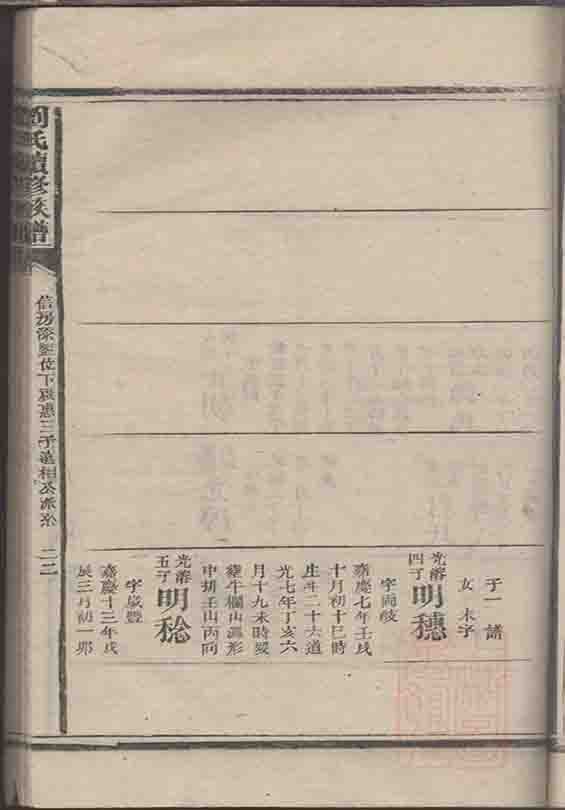 子一譜
女未字
光濬
四子
明穗
字両岐
嘉慶七年壬戌
十月初十巳時
生年二十六道
光七年丁亥六
月十九未時歿
葬牛欄山瀉形
申胡壬山丙向
光濬
五子
明稔
字歲豐
嘉慶十三年戊
辰三月初一卯
周氏續修族譜
信房
位下
三子
二二